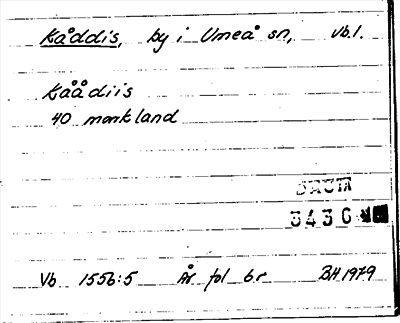 Kåddis, by i Umeå sn, Vb.l.
Kåådiis
40 markland
DAUM
3430
Vb 1556:5 År fol 6r BH 1979